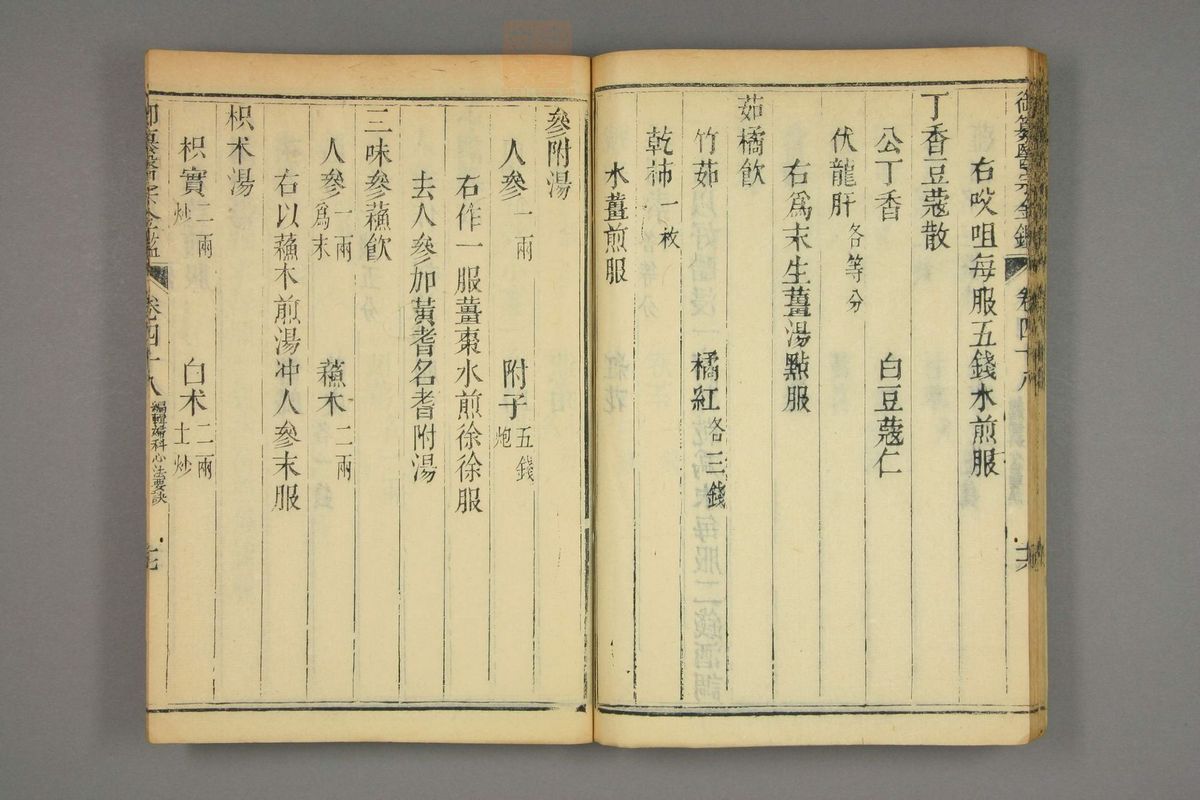 御纂醫宗金鑑 卷四十八 十六
右㕮咀每服五錢水煎服
丁香豆蔻散
公丁香 白豆蔻仁
伏龍肝各等分
右爲末生薑湯點服
茹橘飲
竹茹 橘紅各三錢
乾柿一枚
水薑煎服
參附湯
人參一兩 附子五錢炮
右作一服薑棗水煎徐徐服
去人參加黃耆名耆附湯
三味參蘓飲
人參一兩爲末 蘓木二兩
右以蘓木煎湯冲人參末服
枳术湯
枳實二兩炒 白术二兩土炒
御纂醫宗金鑑 卷四十八 編輯婦科心法要訣 十七